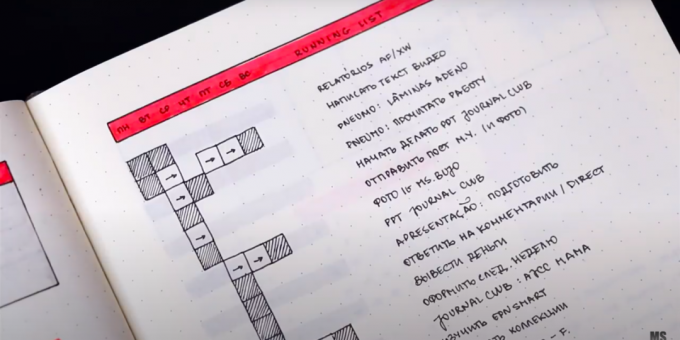 ПН ВТ СР ЧТ ПТ СБ ВС RUNNING LIST
RELATÓRIOS AP/XW
НАПИСАТЬ ТЕКСТ ВИДЕО
PNEUMO: LÂMINAS ADENO
PNEUMO: ПРОЧИТАТЬ РАБОТУ
НАЧАТЬ ДЕЛАТЬ PPT JOURNAL CLUB
ОТПРАВИТЬ ПОСТ М.У. (И ФОТО)
ФОТО IG MS.BUJO
PPT JOURNAL CLUB
APRESENTAÇÃO: ПОДГОТОВИТЬ
ОТВЕТИТЬ НА КОММЕНТАРИИ / DIRECT
ВЫВЕСТИ ДЕНЬГИ
ОФОРМИТЬ СЛЕД. НЕДЕЛЮ
JOURNAL CLUB: AJCC МАМА
ИЗУЧИТЬ EPNSMART
КОЛЛЕКЦИИ
- F.
MS